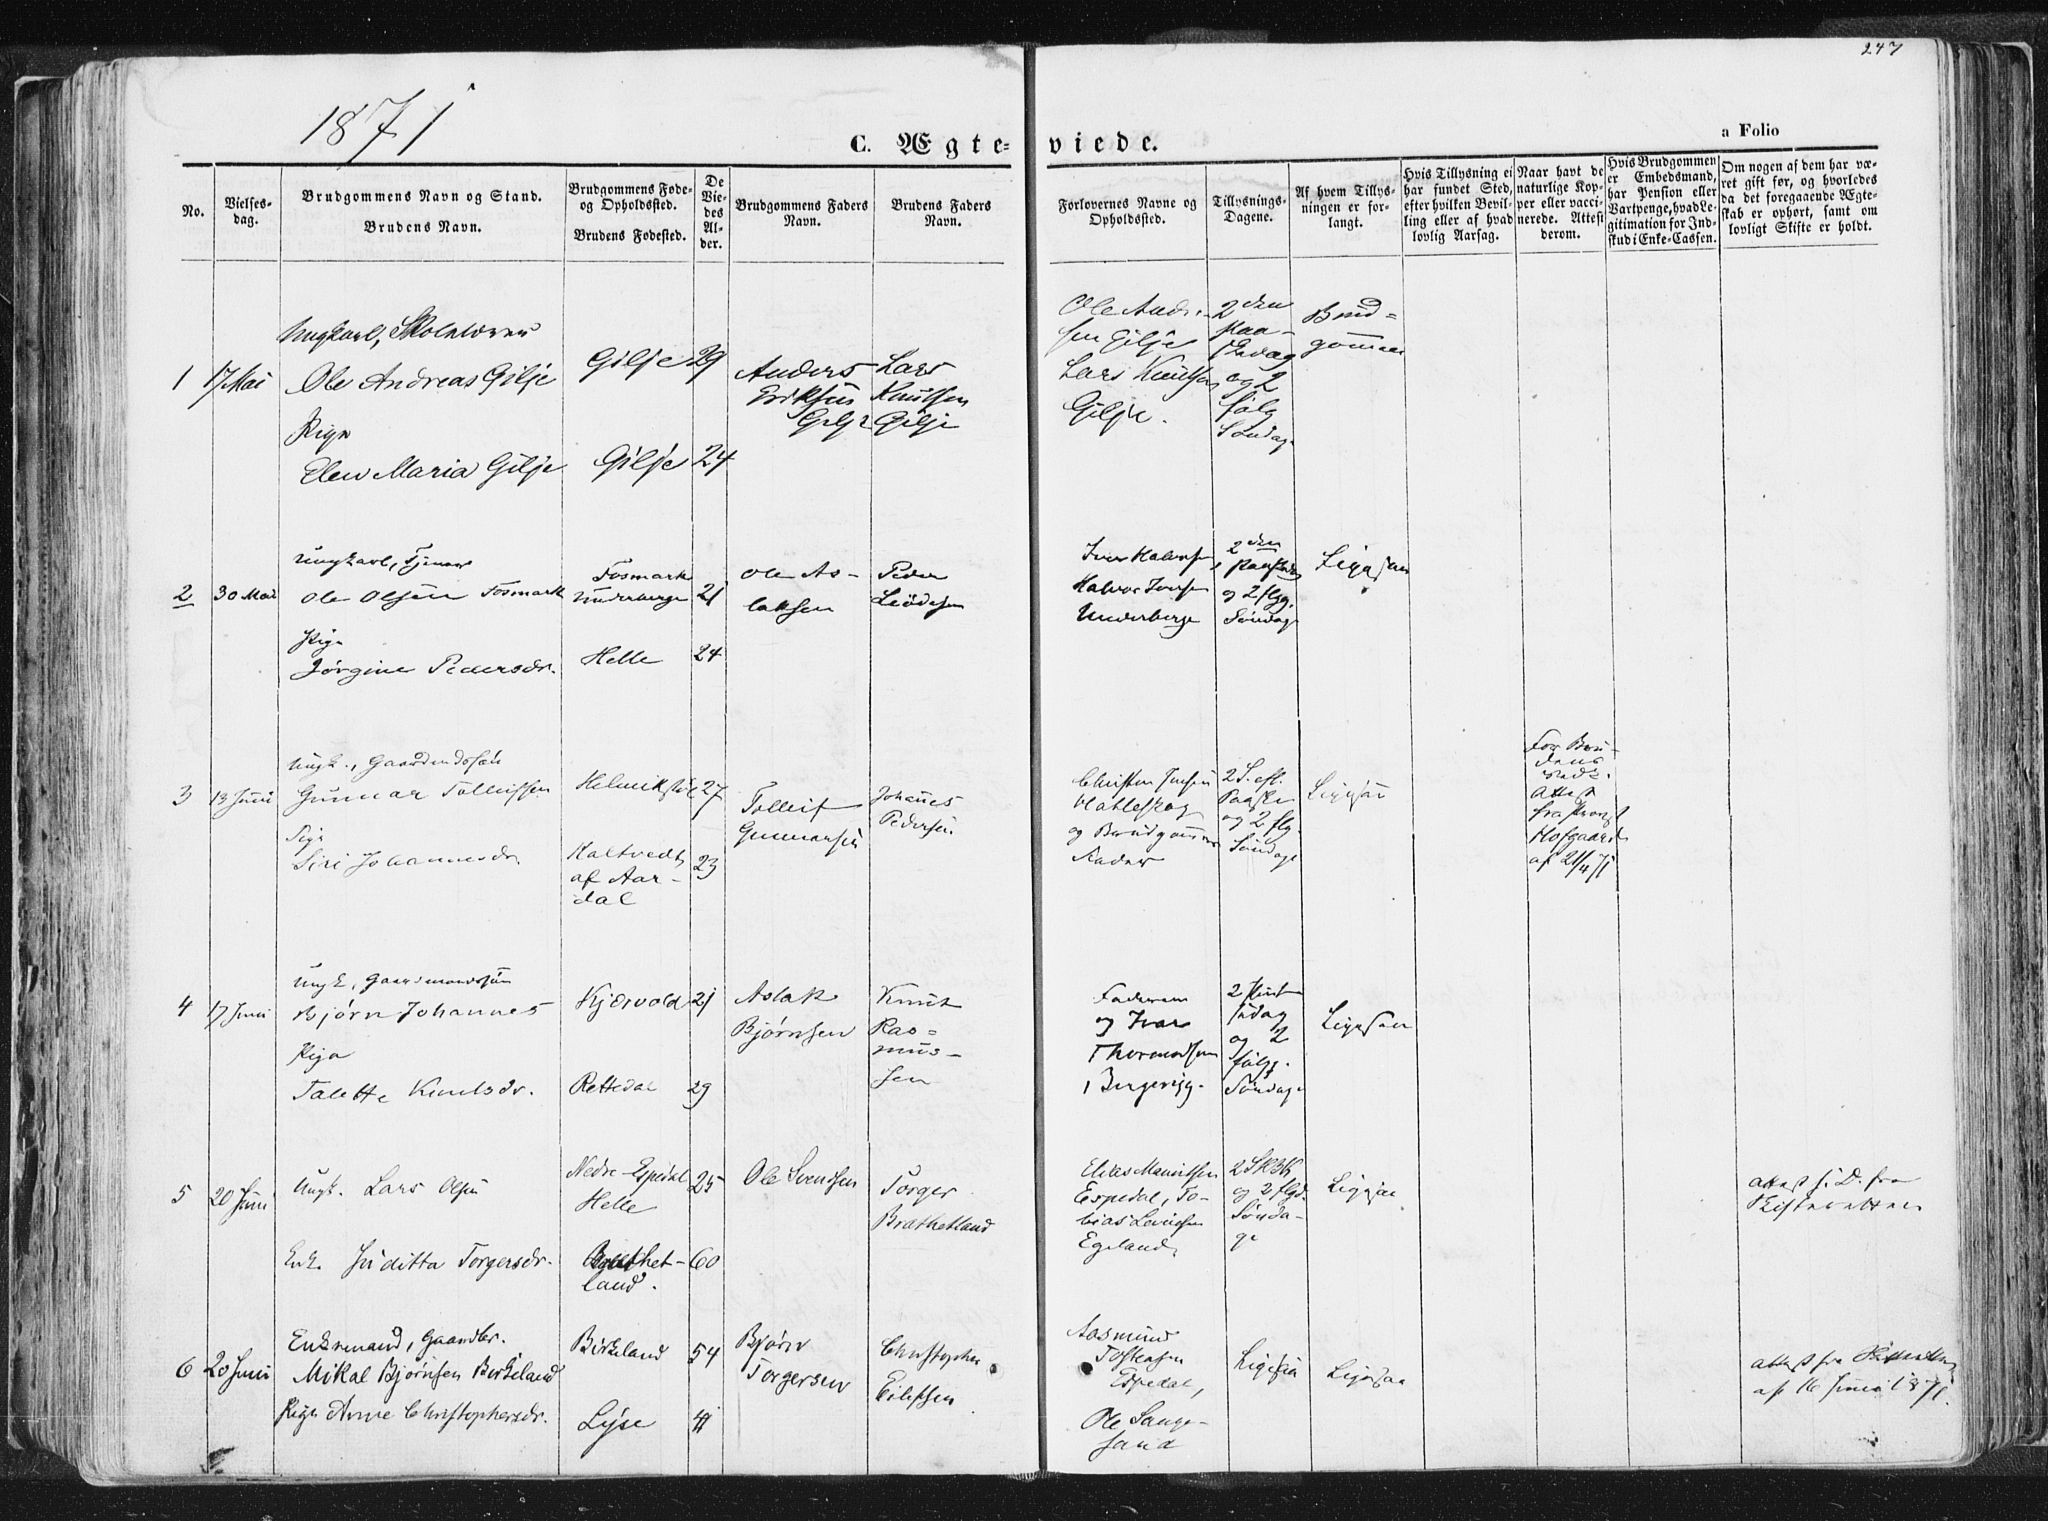 247
1871
C. Ægte-
viede.
a Folio
No.
Vielses-
dag.
Brudgommens Navn og Stand.
Brudens Navn.
Brudgommens Føde-
og Opholdssted.
Brudens Fødested.
De
Vie-
des
Al-
der.
Brudgommens Faders
Navn.
Brudens Faders
Navn.
Forlovernes Navne og
Opholdssted.
Tillysnings-
Dagene.
Af hvem Tillys-
ningen er for-
langt.
Hvis Tillysning ei
har fundet Sted,
efter hvilken Bevil-
ling eller af hvad
lovlig Aarsag.
Naar havt de
naturlige Kop-
per eller vacci-
nerede. Attest
derom.
Hvis Brudgommen
er Embedsmand,
har Pension eller
Vartpenge, hvad Le-
gitimation for Ind-
skud i Enke-Cassen.
Om nogen af dem har væ-
ret gift før, og hvorledes
da det foregaaende Ægte-
skab er ophørt, samt om
lovligt Skifte er holdt.
1
17 Mai
Ungkarl, Skolelærer
Ole Andreas Gilje
Pige
Elen Maria Gilje
Gilje
Gilje
29
24
Anders
Eriksen
Gilje
Lars
Knutsen
Gilje
Ole Andr-
sen Gilje
Lars Knutsen
Gilje.
2den
Paa-
skedag
og 2
følg
Søndage
Brud-
gommen
2
30 Mai
Ungkarl, Tjener
Ole Olsen Fosmark
Pige
Jørgine Pedersdr.
Fosmark
Underberge
Helle
21
24
Ole As-
laksen
Peder
Iver Halvorsen,
Halvor Iversen
Underberge
2den
Paaskedag
og 2 flgg.
Søndage
Ligesaa
3
13 Juni
Ungk., Gaardmdssøn
Gunnar Tolleifsen
Pige
Siri Johannesdr
Helmikstøl
Kaltvedt
af Aar-
dal
27
23
Tolleif
Gunnarsen
Johannes
Pedersen
Christen Jensen
Hatleskog
og Brudgommens
Fader
2 S. eft.
Paaske
og 2 flg.
Søndage
Ligesaa
For Bru-
dens
Vedk.
Attest
fra Provst
Hofgaard
af 21/4 71
4
17 Juni
Ungk, Gaardmandssøn
Bjørn Johannes
Pige
Talette Knutsdr.
Kjærvold
Rettedal
21
29
Aslak
Bjørnsen
Knut
Ras-
mus-
sen
Faderen
og Ivar
Thormodsen
i
2 Pint
sedag
og 2
følgg.
Søndage
Ligesaa
5
20 Juni
Ungk. Lars Olsen
Enk. Juditta Torgersdr.
Nedre-Espedal
Helle
Brathet-
land.
25
60
Ole Svendsen
Torger
Brathetland
Elias Mauritsen
Espedal, To-
bias
Egeland
og 2 flgd.
Sønda-
ge
Ligesaa
Attest s. D. fra
Skifteretten
6
20 Juni
Enkemand, Gaardbr.
Mikal Bjørnsen Birkeland
Pige Anne Christophersdr.
Birkeland
Lyse
54
41
Bjørn
Torgersen
Christopher
Eilefsen
Aasmund
Tostensen
Espedal,
Ole Lange-
sand
Ligesaa
Ligesaa
Attest fra Skifteretten
af 16 Juni 1871.